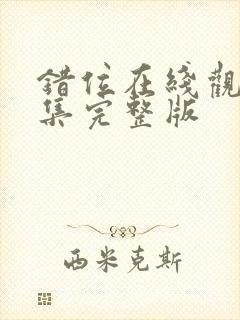 错位在綫觀
集完整版
西米克斯